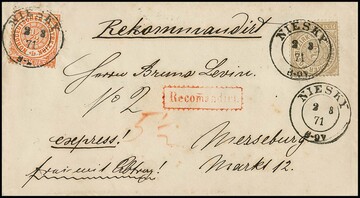 NIESKY
2 8
71
Rekommandirt
NIESKY
2 8
71
8-9V.
Herrn Bruno Levin.
No 2
Recomandirt.
NIESKY
2 8
71
8-9V.
express!
Merseburg
frei mit Abtrag!
Markt 12.